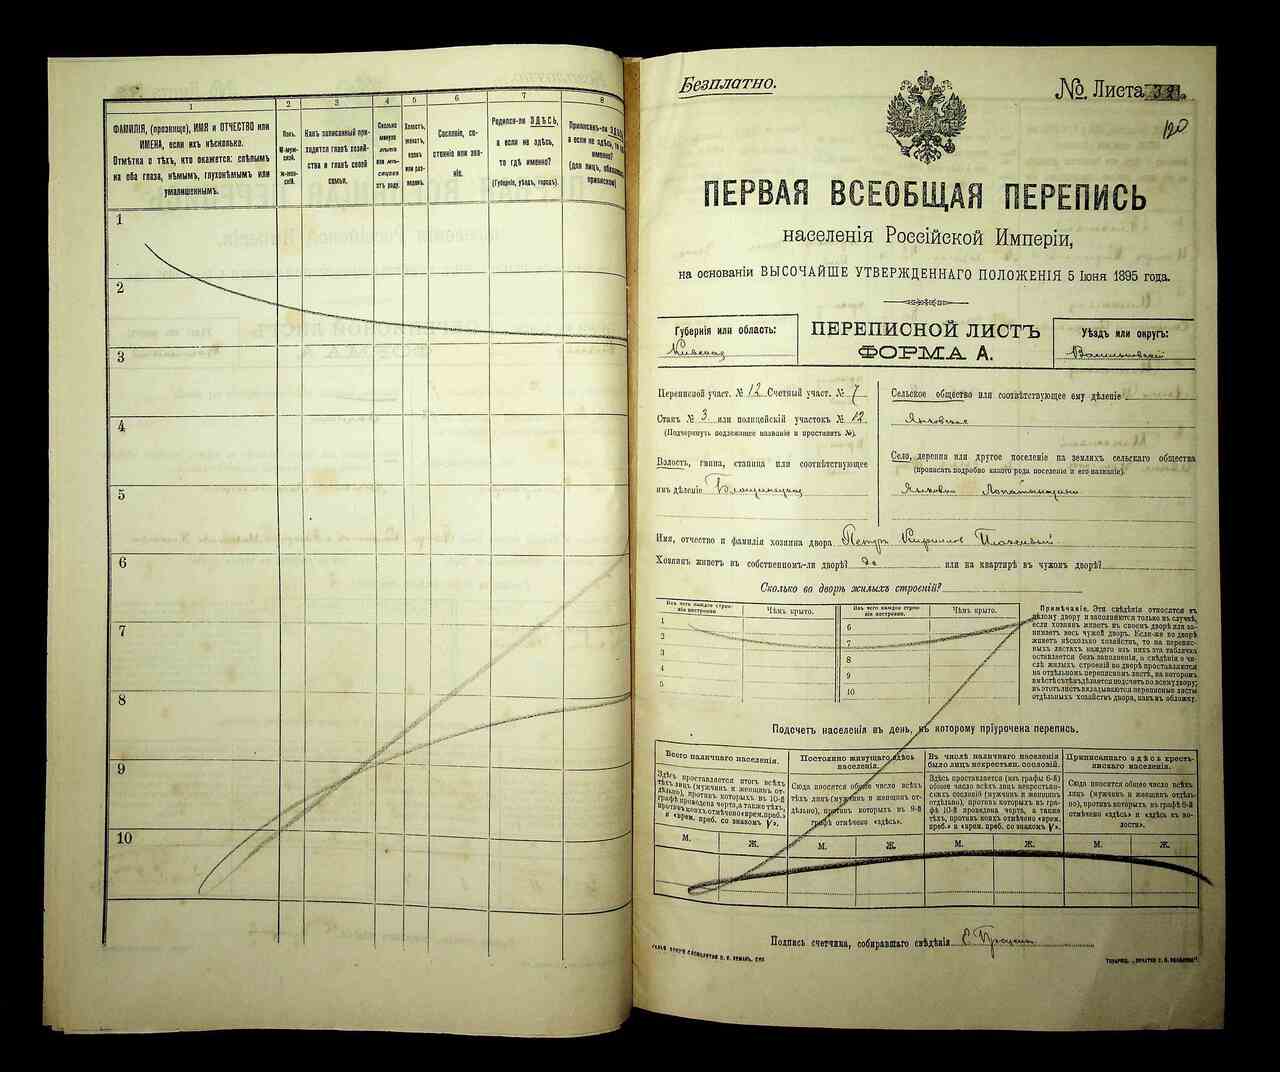 1
2
3
4
5
6
7
8
ФАМИЛІЯ, (прозвище), ИМЯ и ОТЧЕСТВО или
ИМЕНА, если ихъ нѣсколько.
Отмѣтка о тѣхъ, кто окажется: слѣпымъ
на оба глаза, нѣмымъ, глухонѣмымъ или
умалишеннымъ.
Полъ.
М-муж-
ской.
Ж-жен-
скій.
Какъ записанный при-
ходится главѣ хозяй-
ства и главѣ своей
семьи.
Сколько
минуло
лѣтъ
или мѣ-
сяцевъ
отъ роду.
Холостъ,
женатъ,
вдовъ
или раз-
веденъ.
Сословіе, со-
стояніе или зва-
ніе.
Родился-ли ЗДѢСЬ,
а если не здѣсь,
то гдѣ именно?
(Губернія, уѣздъ, городъ).
Приписанъ-ли ЗДѢСЬ,
а если не здѣсь, то гдѣ
именно?
(для лицъ, обязанныхъ
припискою)
1
2
3
4
5
6
7
8
9
10
Безплатно.
№ Листа
120
ПЕРВАЯ ВСЕОБЩАЯ ПЕРЕПИСЬ
населенія Россійской Имперіи,
на основаніи ВЫСОЧАЙШЕ УТВЕРЖДЕННАГО ПОЛОЖЕНІЯ 5 Іюня 1895 года.
Губернія или область:
Кіевская
ПЕРЕПИСНОЙ ЛИСТЪ
ФОРМА А.
Уѣздъ или округъ:
Васильковскій
Переписной участ. № 12 Счетный участ. № 7
Станъ № 3 или полицейскій участокъ № 12
(Подчеркнуть подлежащее названіе и проставить №).
Волость, гмина, станица или соотвѣтствующее
имъ дѣленіе
Сельское общество или соотвѣтствующее ему дѣленіе
Село, деревня или другое поселеніе на земляхъ сельскаго общества
(прописать подробно какого рода поселеніе и его названіе).
Имя, отчество и фамилія хозяина двора Петръ Кирилловъ
Хозяинъ живетъ въ собственномъ-ли дворѣ? да или на квартирѣ въ чужомъ дворѣ?
Сколько во дворѣ жилыхъ строеній?
Изъ чего каждое строе-
ніе построено.
Чѣмъ крыто.
Изъ чего каждое строе-
ніе построено.
Чѣмъ крыто.
1
2
3
4
5
6
7
8
9
10
Примѣчаніе. Эти свѣдѣнія относятся къ
цѣлому двору и заполняются только въ случаѣ,
если хозяинъ живетъ въ своемъ дворѣ или за-
нимаетъ весь чужой дворъ. Если-же во дворѣ
живетъ нѣсколько хозяйствъ, то на перепис-
ныхъ листахъ каждаго изъ нихъ эта табличка
оставляется безъ заполненія, а свѣдѣнія о чи-
слѣ жилыхъ строеній во дворѣ проставляются
на отдѣльномъ переписномъ листѣ, на которомъ
вмѣстѣ съ тѣмъ дѣлается подсчетъ по всему двору;
въ этотъ листъ вкладываются переписные листы
отдѣльныхъ хозяйствъ двора, какъ въ обложку.
Подсчетъ населенія въ день, къ которому пріурочена перепись.
Всего наличнаго населенія.
Здѣсь проставляется итогъ всѣхъ
тѣхъ лицъ (мужчинъ и женщинъ от-
дѣльно), противъ которыхъ въ 10-й
графѣ проведена черта, а также тѣхъ,
противъ коихъ отмѣчено «врем. преб.»
и «врем. преб. со знакомъ V».
М.
Ж.
Постоянно живущаго здѣсь
населенія.
Сюда вносится общее число всѣхъ
тѣхъ лицъ (мужчинъ и женщинъ от-
дѣльно), противъ которыхъ въ 9-й
графѣ отмѣчено «здѣсь».
М.
Ж.
Въ числѣ наличнаго населенія
было лицъ некрестьян. сословій.
Здѣсь проставляется (изъ графы 6-й)
общее число всѣхъ лицъ некрестьян-
скихъ сословій (мужчинъ и женщинъ
отдѣльно), противъ которыхъ въ гра-
фѣ 10-й проведена черта, а также
тѣхъ, противъ коихъ отмѣчено «врем.
преб.» и «врем. преб. со знакомъ V».
М.
Ж.
Приписаннаго здѣсь кресть-
янскаго населенія.
Сюда вносится общее число всѣхъ
лицъ (мужчинъ и женщинъ отдѣль-
но), противъ которыхъ въ графѣ 8-й
отмѣчено «здѣсь» и «здѣсь въ во-
лости».
М.
Ж.
Подпись счетчика, собиравшаго свѣдѣнія